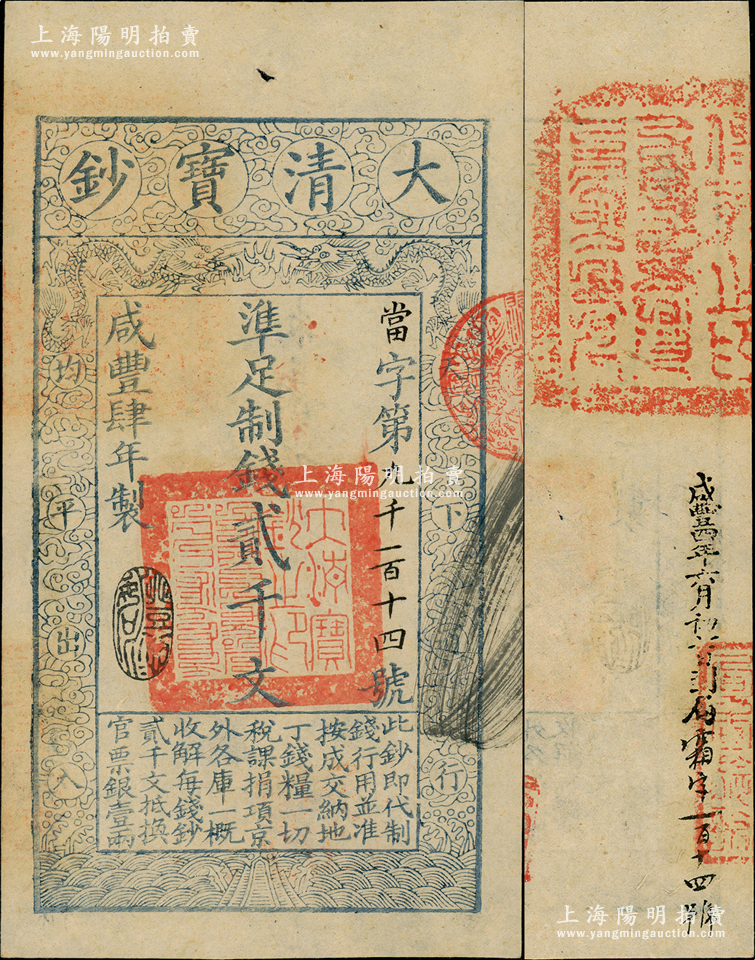 上海陽明拍賣
www.yangmingauction.com
上海陽明拍賣
www.yangmingauction.com
大清寶鈔
天下
通行
均平出入
當字第九千一百十四號
準足制錢貳千文
咸豐肆年製
此鈔即代制
錢行用並准
按成交納地
丁錢糧一切
稅課捐項京
外各庫一概
收解每錢鈔
貳千文抵換
官票銀壹兩
大清寶
鈔之印
上海陽明拍賣
www.yangmingauction.com
咸豐四年六月初
字一百十四號
上海陽明拍賣
www.yangmingauction.com